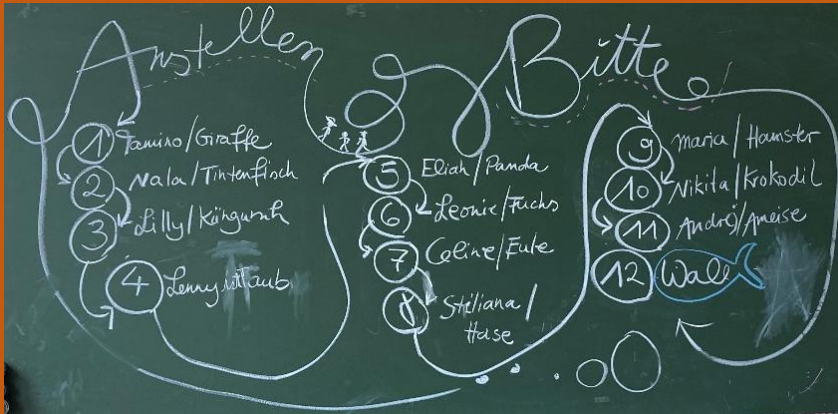 Anstellen Bitte
1 Tamino/Giraffe
2 Nala/Tintenfisch
3 Lilly/Känguruh
4 Lenny
5 Eliah/Panda
6 Leonie/Fuchs
7 Celine/Eule
8 Stiliana/
Hase
9 Maria/Hamster
10 Nikita/Krokodil
11 Andrej/Ameise
12 Wale